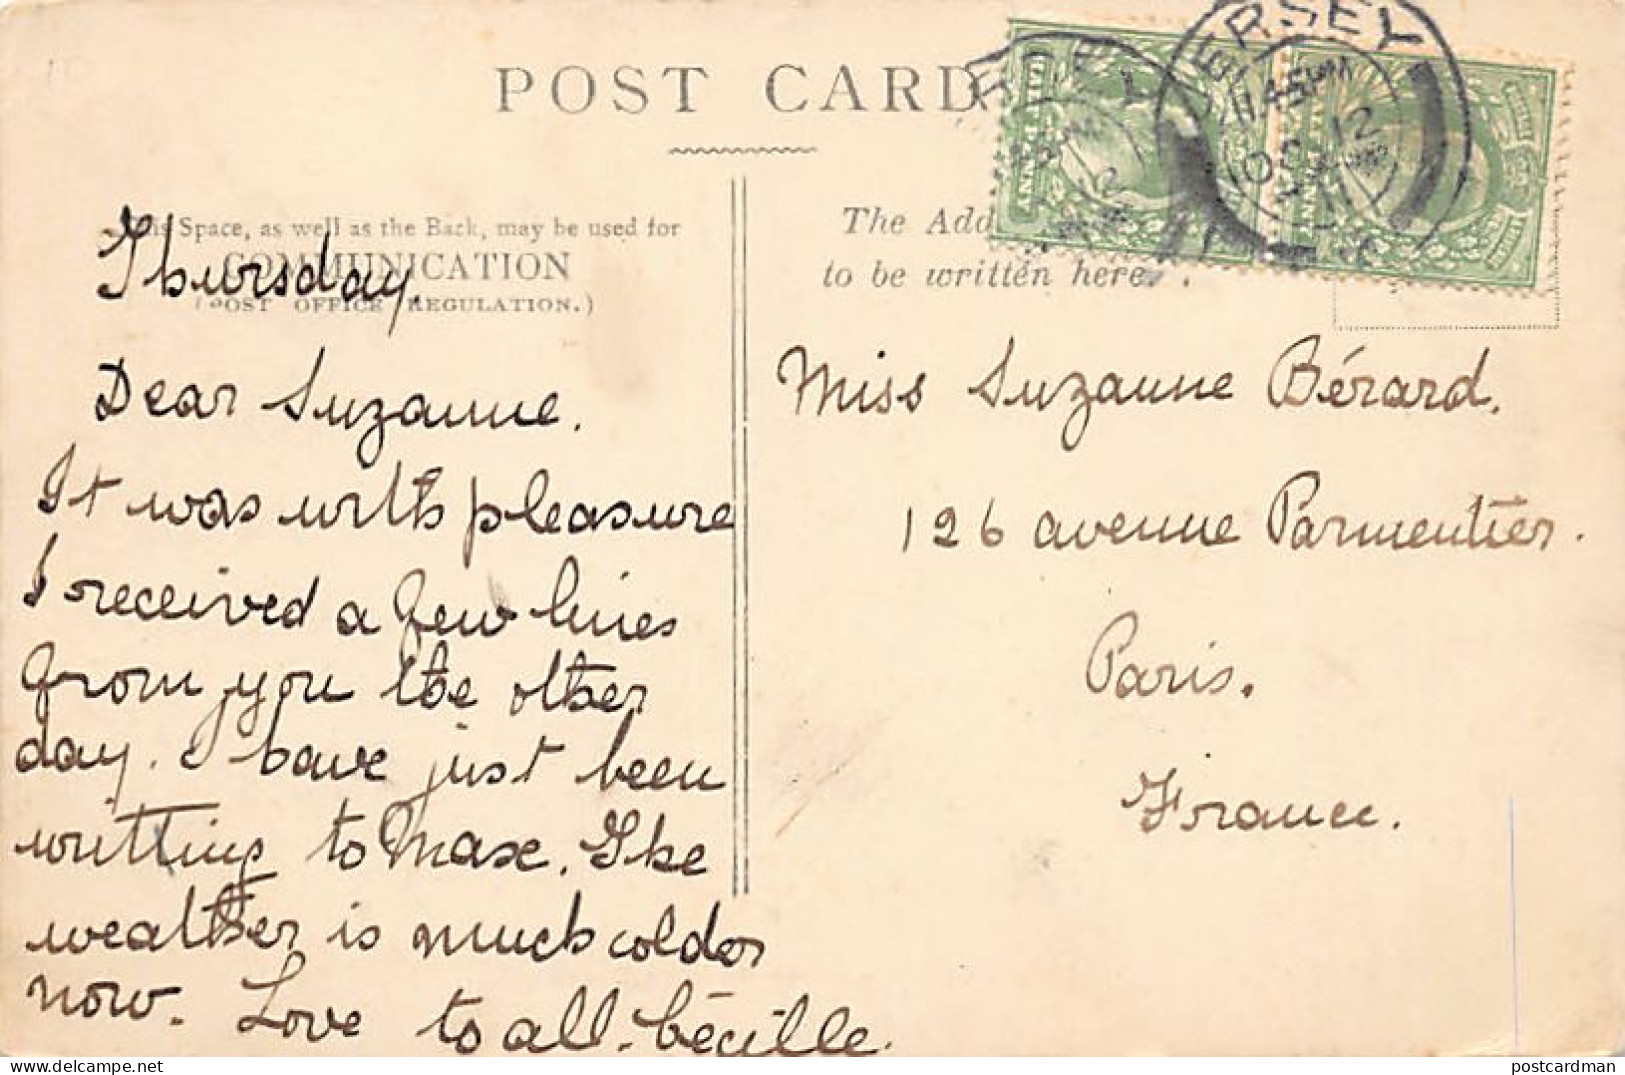 POST CARD
This Space, as well as the Back, may be used for
COMMUNICATION
(POST OFFICE REGULATION.)
The Add
to be written here.
JERSEY
11 45 PM
OC 12
11
Thursday.
Dear Suzanne.
It was with pleasure
I received a few lines
from you the other
day. I have just been
writting to Maxe. The
weather is much colder
now. Love to all. Cécille.
Miss Suzanne Bérard.
126 avenue Parmentier.
Paris.
France.
postcardman